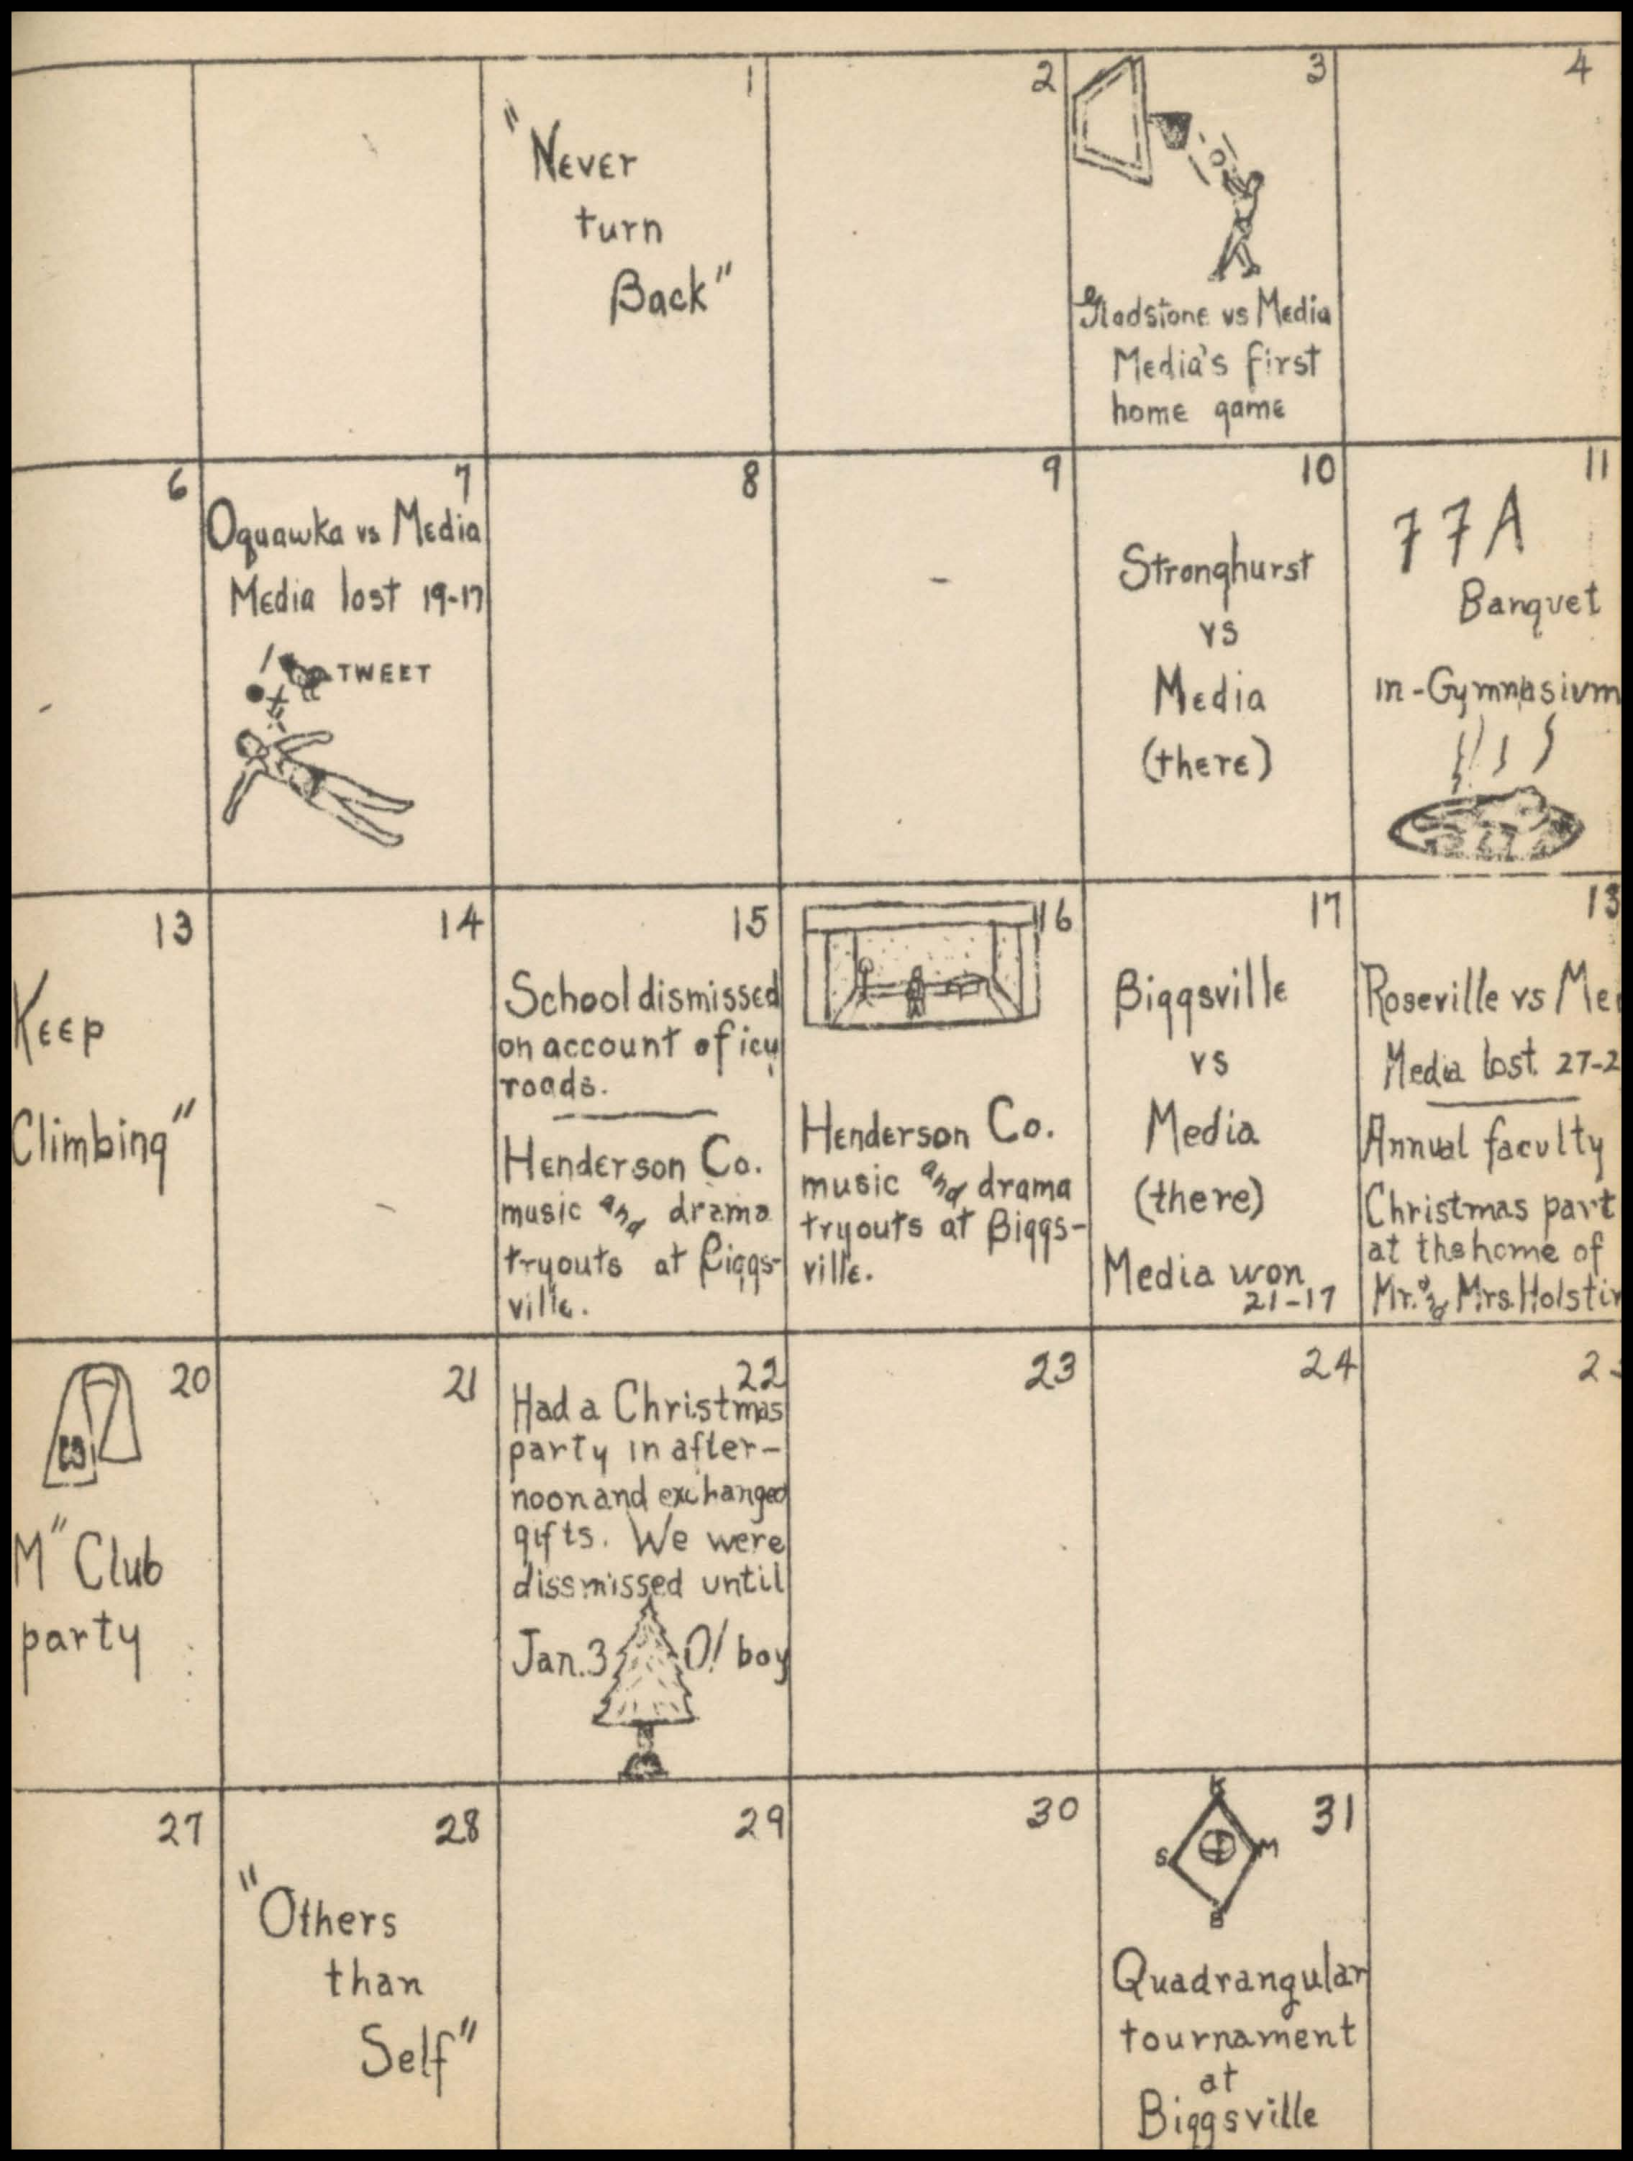 1
"Never
turn
Back"
2
3
Gladstone vs Media
Media's first
home game
4
6
7
Oquawka vs Media
Media lost 19-17
TWEET
8
9
10
Stronghurst
vs
Media
(there)
11
FFA
Banquet
in-Gymnasium
13
Keep
Climbing"
14
15
School dismissed
on account of icy
roads.
Henderson Co.
music and drama
tryouts at Biggs-
ville.
16
Henderson Co.
music and drama
tryouts at Biggs-
ville.
17
Biggsville
vs
Media
(there)
Media won
21-17
Roseville vs
Media lost
Annual faculty
Christmas
at the home of
Mr. and Mrs.
20
M" Club
party
21
22
Had a Christmas
party in after-
noon and exchanged
gifts. We were
dissmissed until
Jan. 3 O! boy
23
24
27
28
"Others
than
Self"
29
30
31
K
S
M
B
Quadrangular
tournament
at
Biggsville